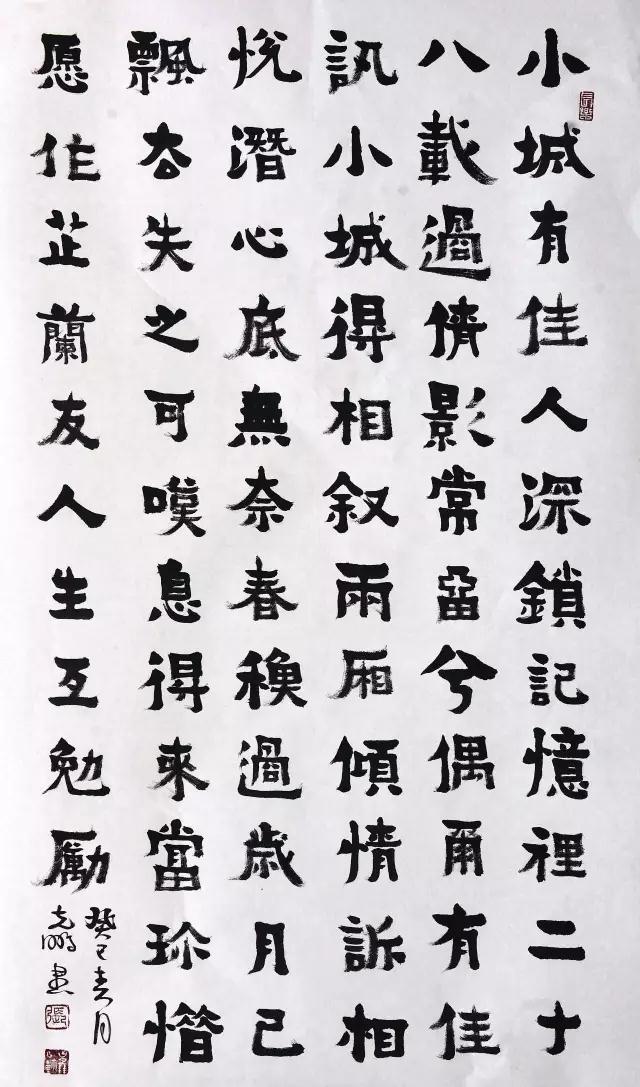 小城有佳人深鎖記憶裡二十
八載過倩影常留兮偶爾有佳
訊小城得相叙兩厢傾情訴相
悅潛心底無奈春穐過歲月已
飄杳失之可嘆息得來當珍惜
愿作芷蘭友人生互勉勵
癸巳春月